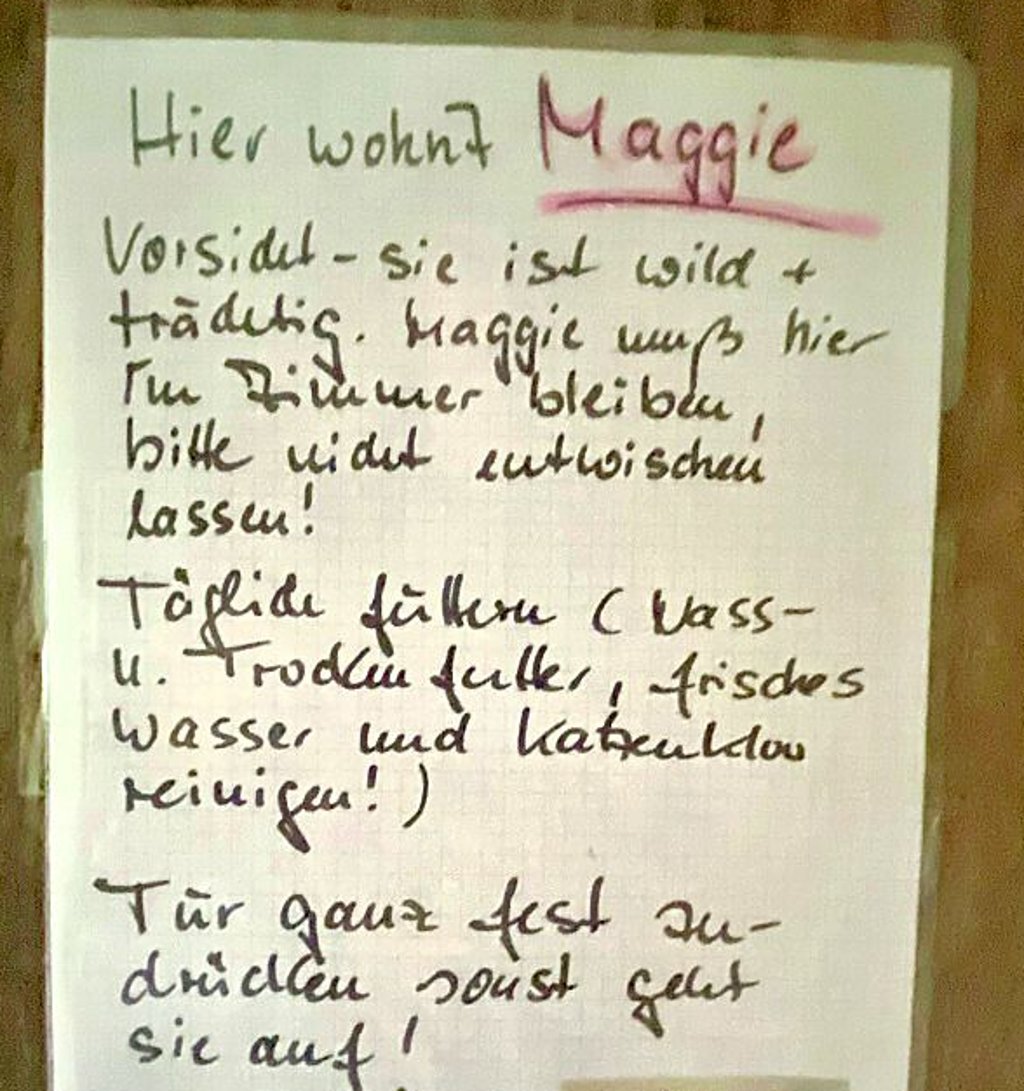 Hier wohnt Maggie
Vorsicht - sie ist wild +
trächtig. Maggie muß hier
im Zimmer bleiben,
bitte nicht entwischen
lassen!
Täglich füttern ( Nass-
u. Trockenfutter, frisches
Wasser und Katzenklow
reinigen! )
Tür ganz fest zu-
drücken sonst geht
sie auf!